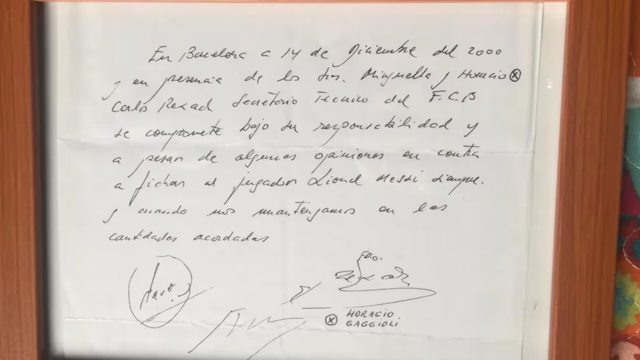 En Barcelona a 14 de Diciembre del 2000
y en presencia de los Srs. Minguella y Horacio ⊗
Carlos Rexach Secretario Tecnico del F.C.B
se compromete bajo su responsabilidad y
a pesar de algunas opiniones en contra
a fichar al jugador Lionel Messi siempre
y cuando nos mantengamos en las
cantidades acordadas
Fdo.
⊗ HORACIO
GAGGIOLI